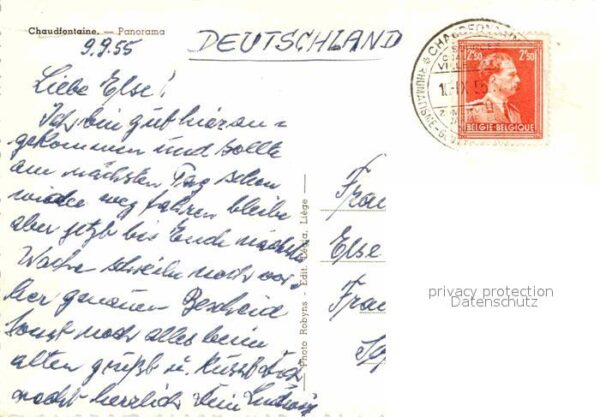 Chaudfontaine. — Panorama
9.9.55
DEUTSCHLAND
Liebe Else!
Ich bin gut hier an=
gekommen und sollte
am nächsten Tag schon
wieder weg fahren bleibe
aber jetzt bis Ende nächster
Woche schreibe noch vor=
her genauen Bescheid
sonst noch alles beim
alten grüßt u. küsst Dich
recht herzlich Dein
Photo Robyns - Edit. Liège
Frau
Else
Frau
BELGIE BELGIQUE
2F50 2F50
privacy protection
Datenschutz